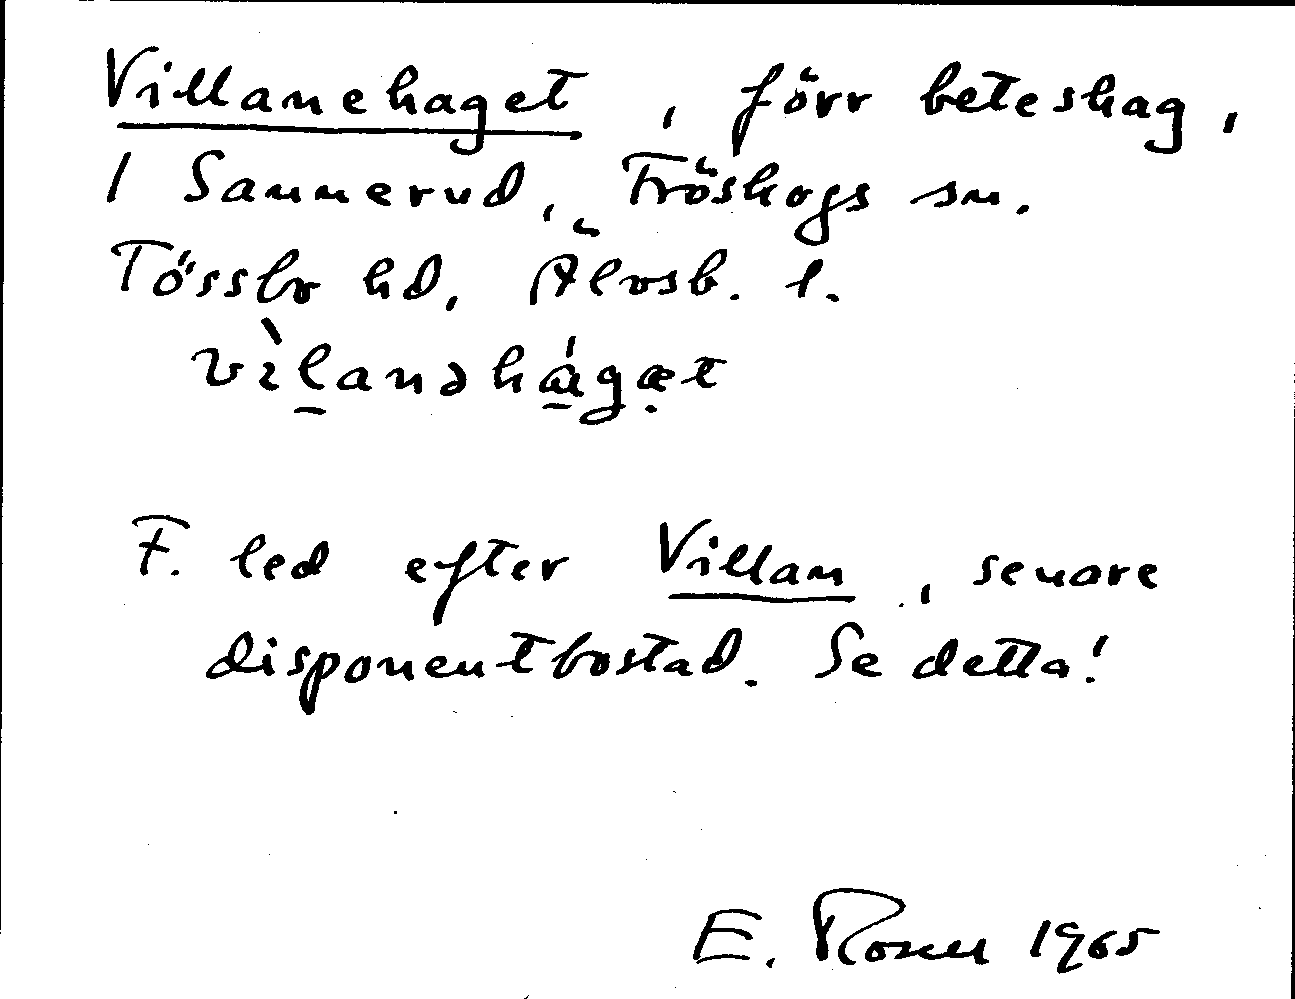 Villanehaget, förr beteshag,
1 Sannerud, Fröskogs sn.
Tössbo hd, Älvsb. l.
vìlanəhágæt
F. led efter Villan, senare
disponentbostad. Se detta!
E. Rosen 1965